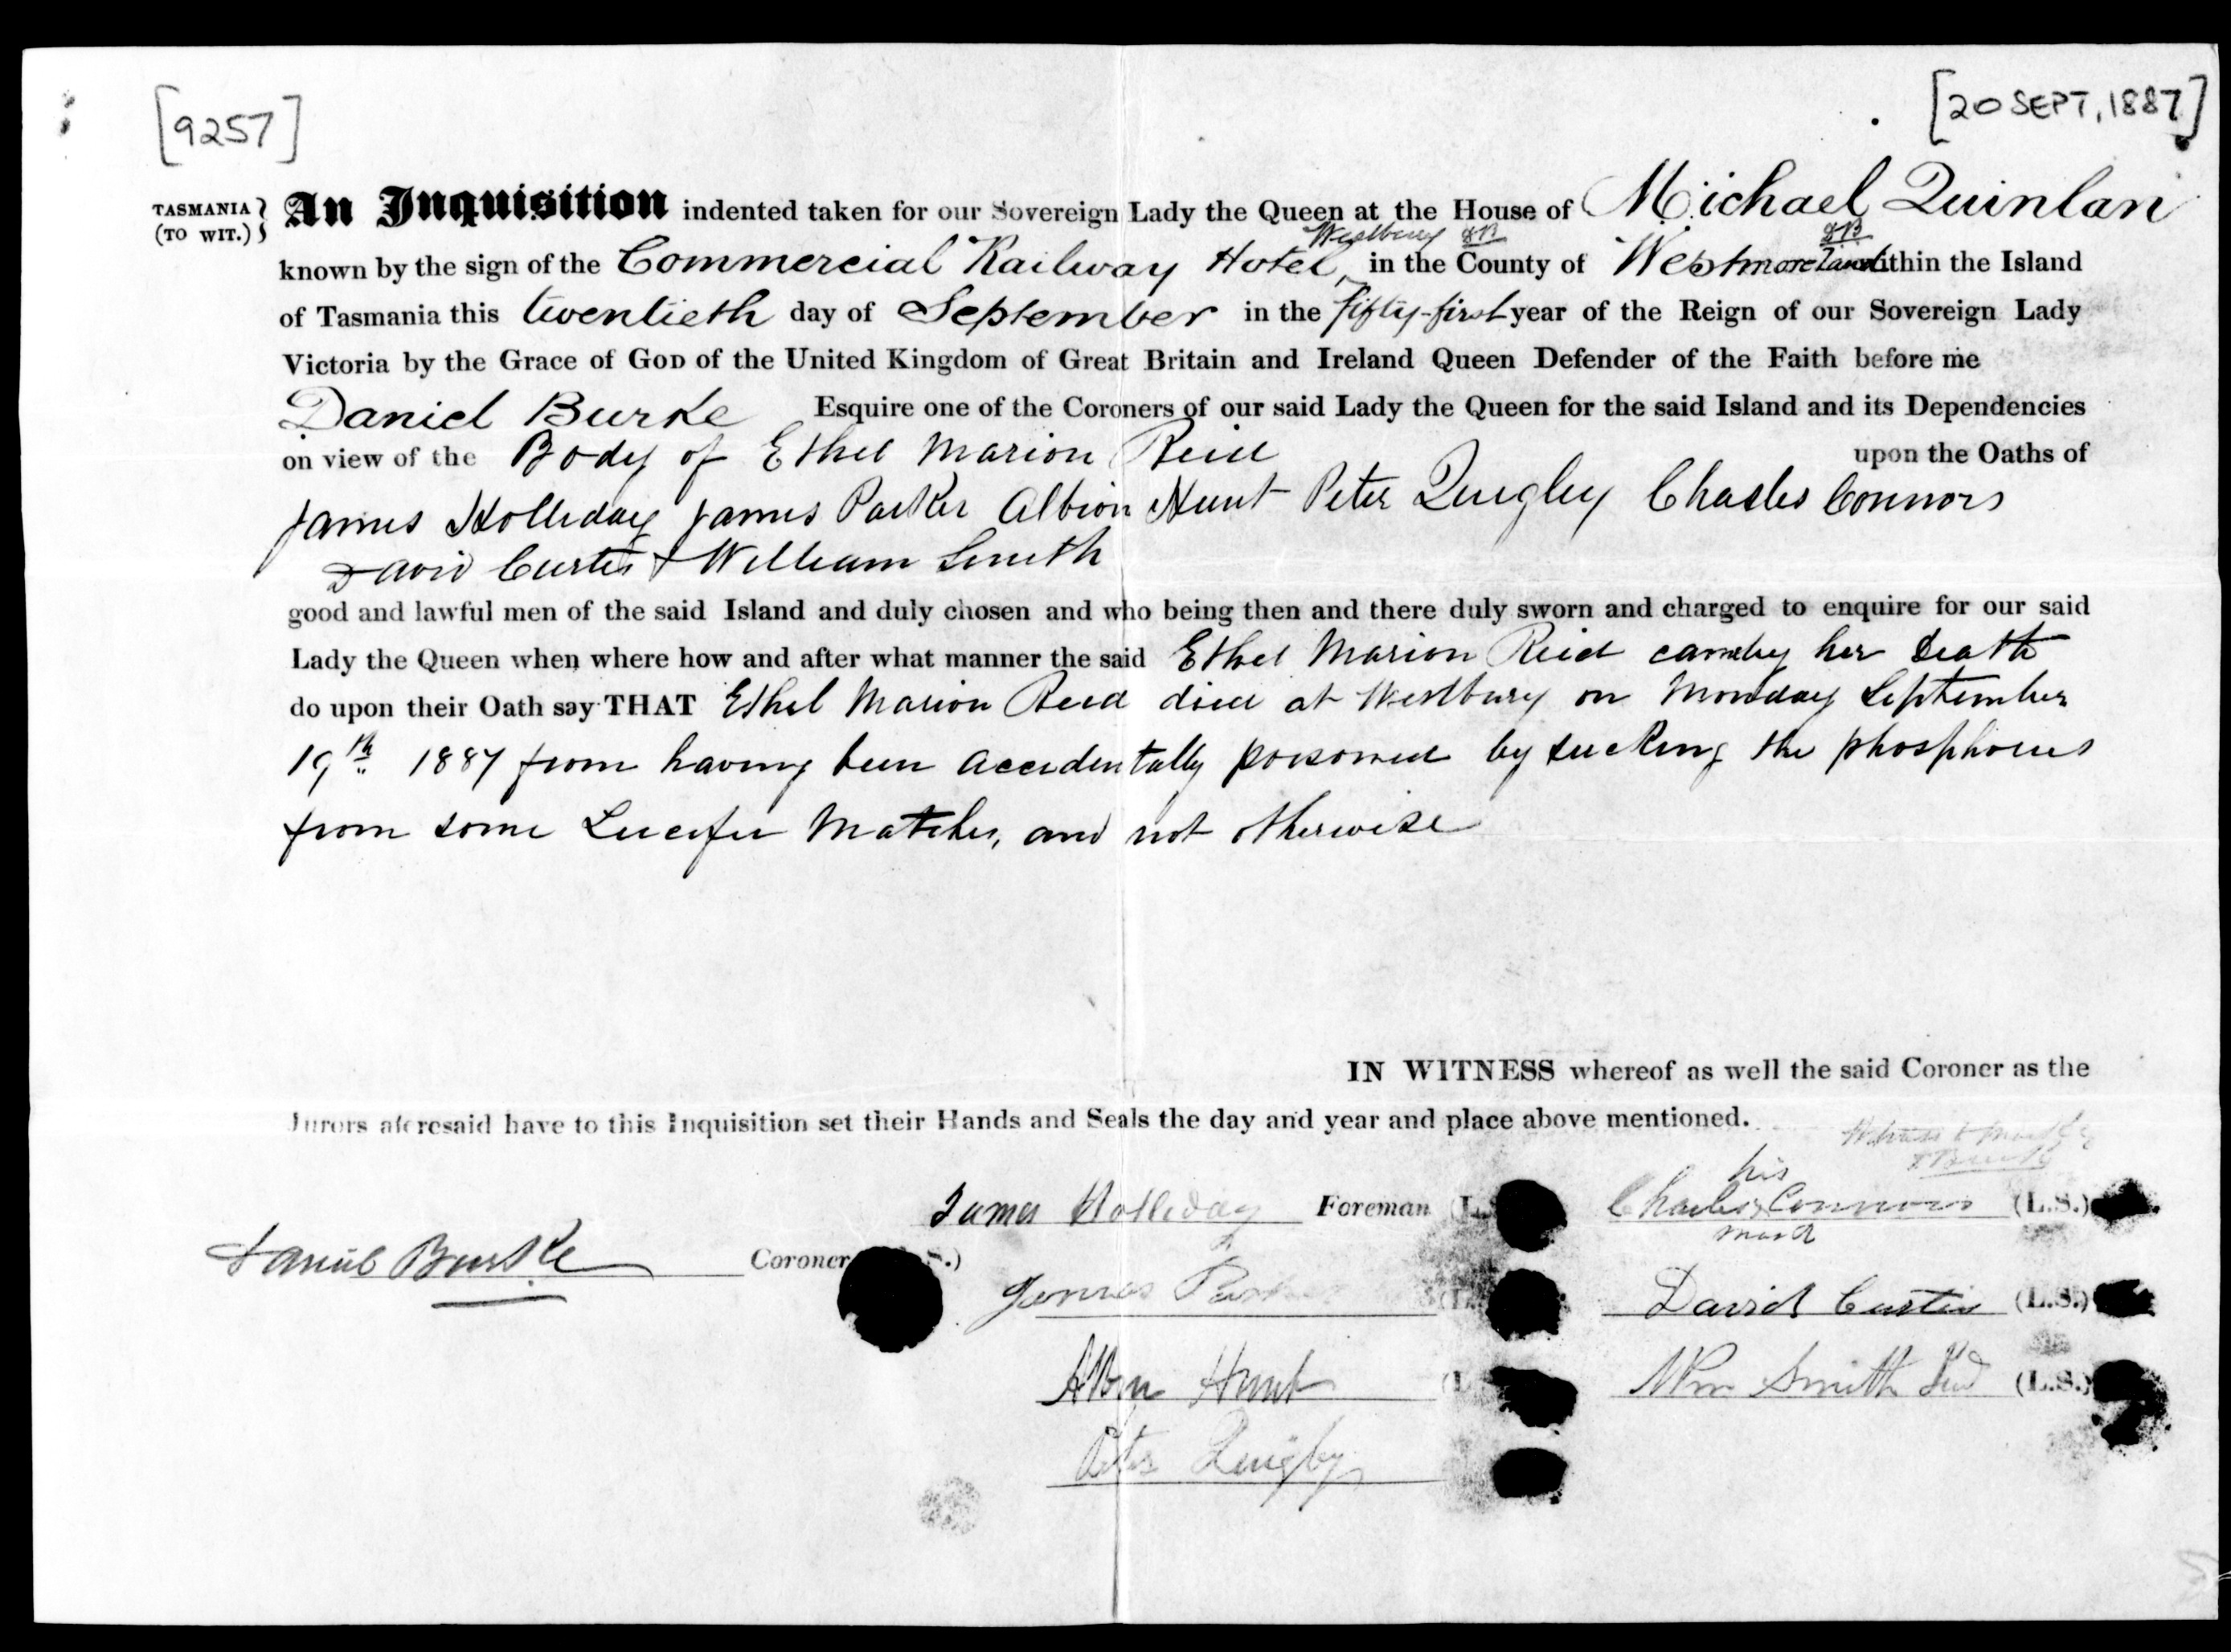 [9257]
[20 SEPT, 1887]
TASMANIA } An Inquisition indented taken for our Sovereign Lady the Queen at the House of Michael Quinlan
(TO WIT.) }
Westbury DB DB
known by the sign of the Commercial Railway Hotel, in the County of Westmoreland within the Island
of Tasmania this twentieth day of September in the fifty-first year of the Reign of our Sovereign Lady
Victoria by the Grace of GOD of the United Kingdom of Great Britain and Ireland Queen Defender of the Faith before me
Daniel Burke Esquire one of the Coroners of our said Lady the Queen for the said Island and its Dependencies
on view of the Body of Ethel Marion Reid upon the Oaths of
James Holliday James Parker Albion Hunt Peter Quigley Charles Connors
David Curtis & William Smith
good and lawful men of the said Island and duly chosen and who being then and there duly sworn and charged to enquire for our said
Lady the Queen when where how and after what manner the said Ethel Marion Reid came by her Death
do upon their Oath say THAT Ethel Marion Reid died at Westbury on Monday September
19th 1887 from having been accidentally poisoned by sucking the phosphorus
from some Lucifer Matches, and not otherwise
IN WITNESS whereof as well the said Coroner as the
Jurors aforesaid have to this Inquisition set their Hands and Seals the day and year and place above mentioned.
Witness to Mark
D Burke
his
James Holliday Foreman (L. Charles X Connors (L.S.)
mark
Daniel Burke Coroner S.)
James Parker (L. David Curtis (L.S.)
Albn Hunt (L Wm Smith (L.S.)
Peter Quigley